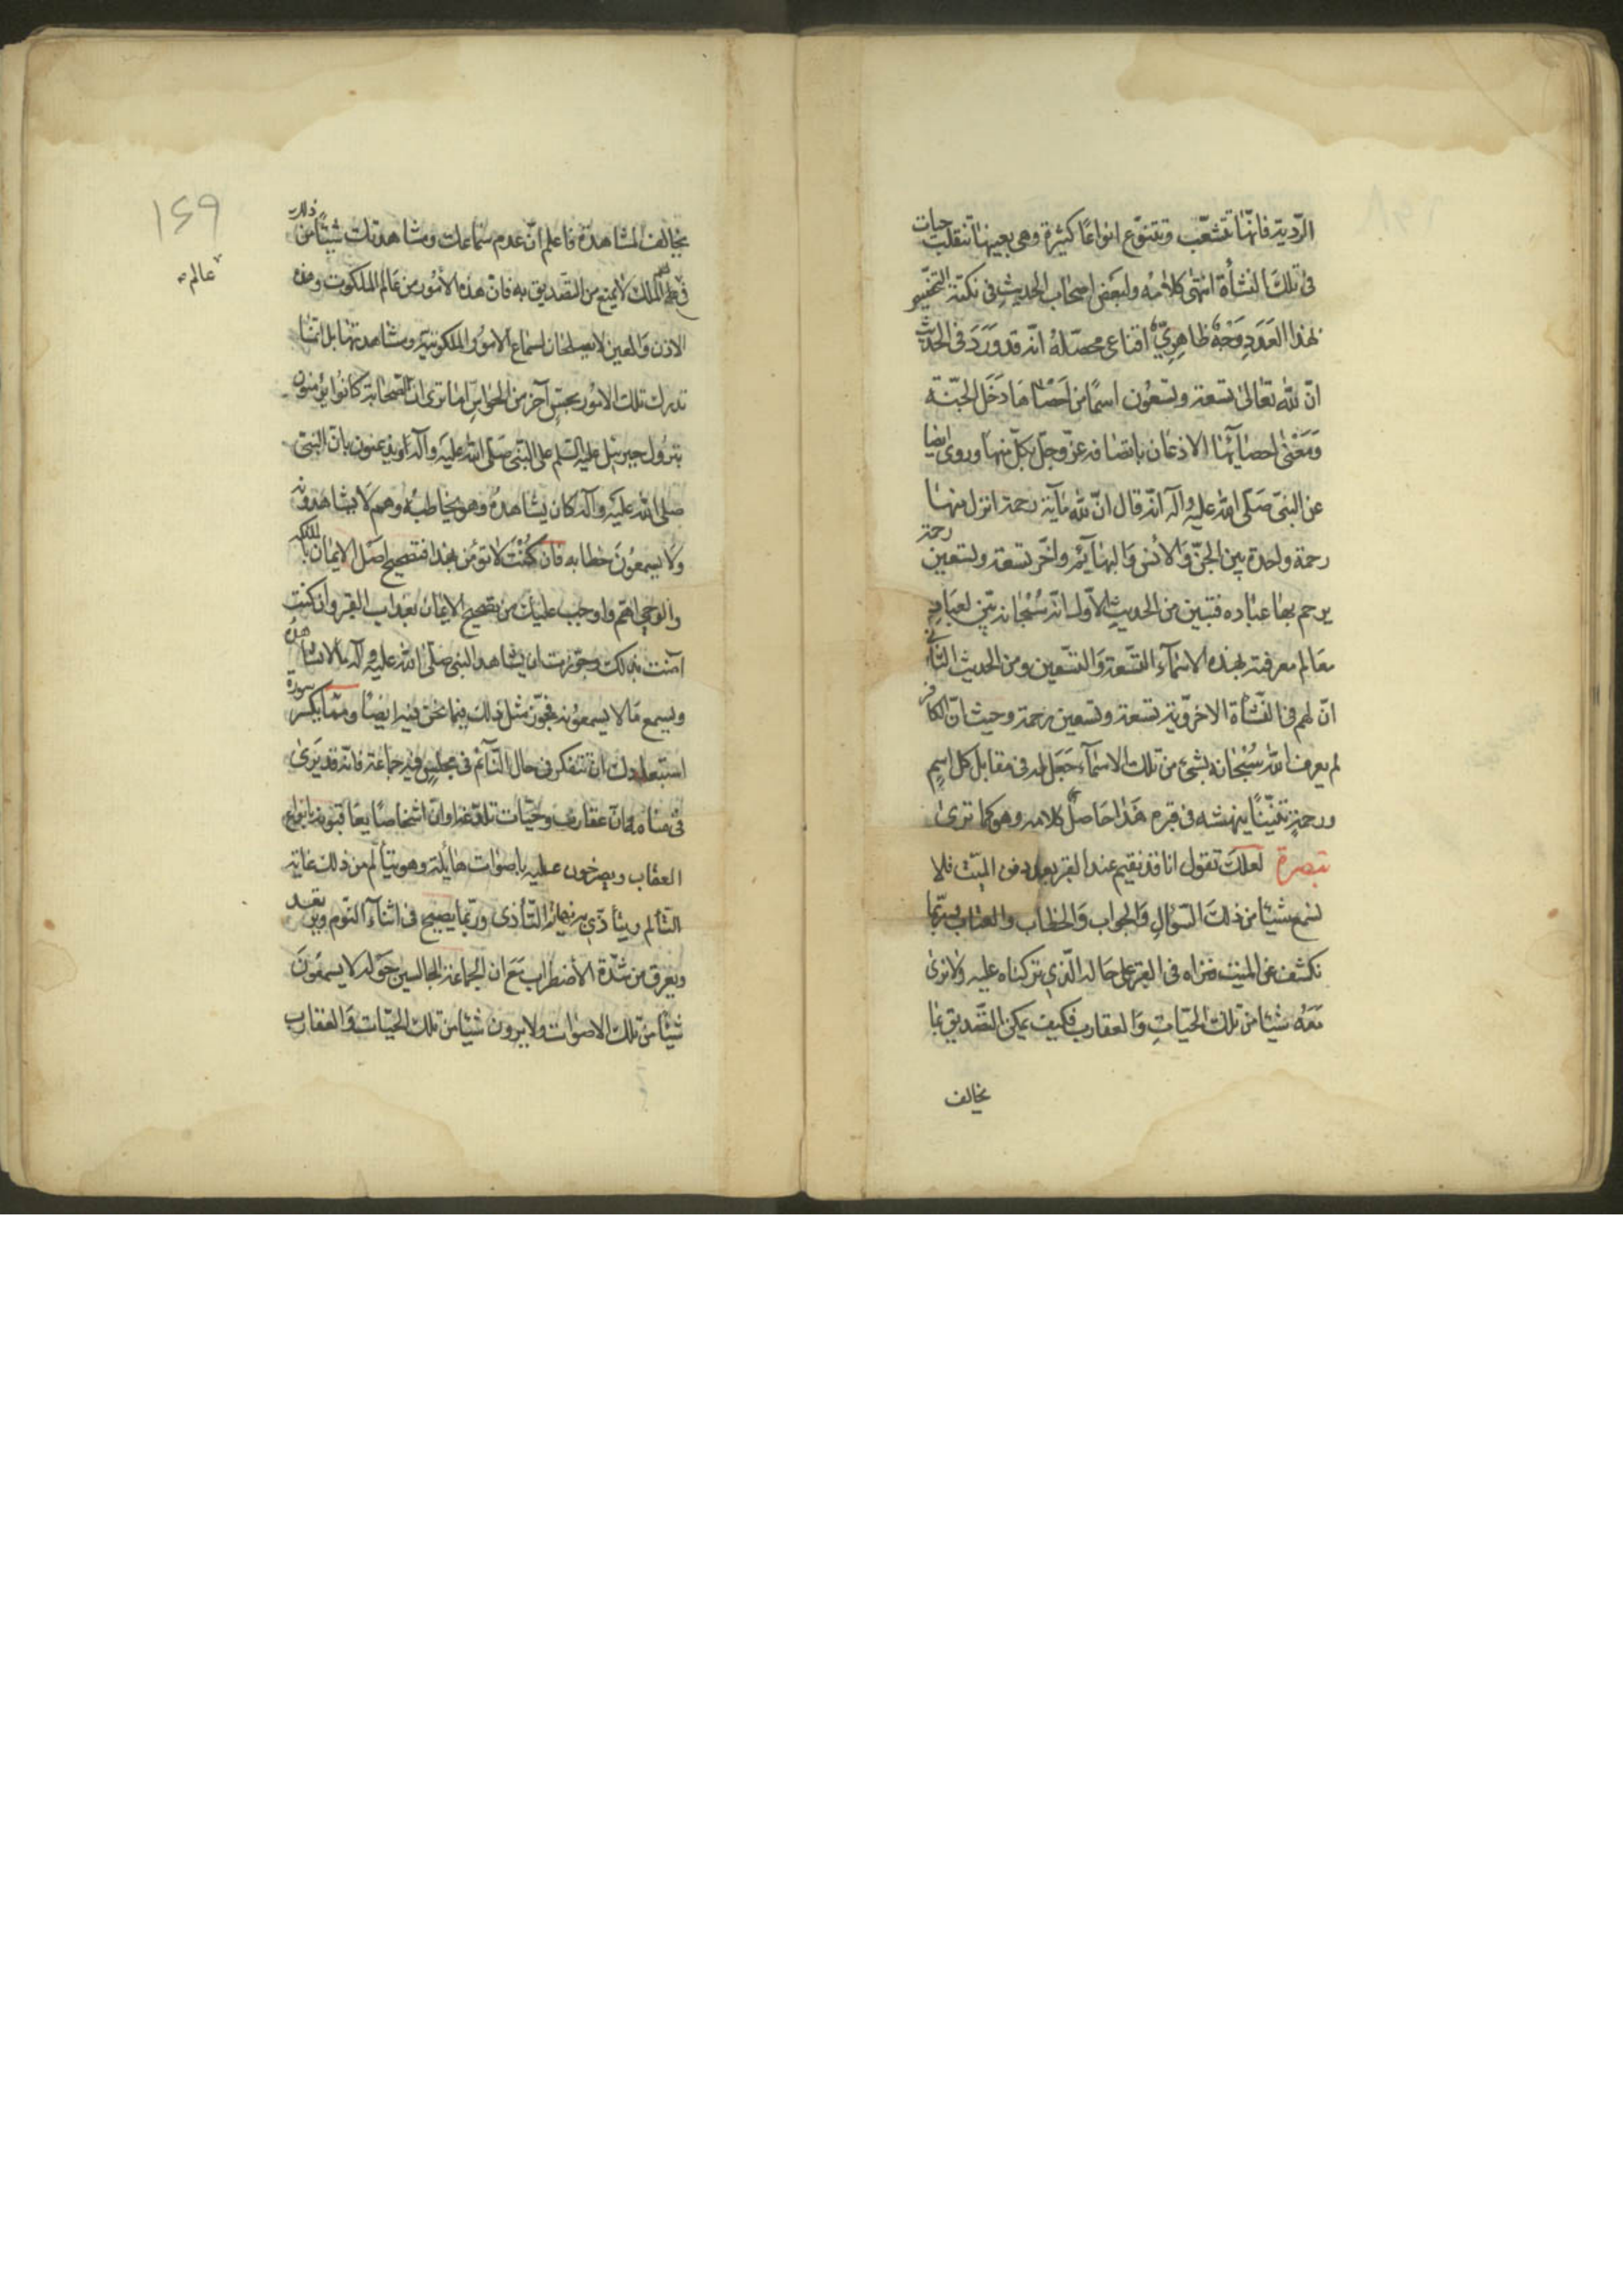 الرّديّة فانّها تتشعّب وتتنوّع انواعًا كثيرة وهى بعينها تنقلب حيات
فى تلك النشأة انتهى كلامه ولبعض اصحاب الحديث فى نكتة التخصيص
بهذا العدد وجه ظاهرىّ اقناعى محصّله انّه قد ورد فى الحديث
انّ لله تعالى تسعة وتسعون اسمًا من احصاها دخل الجنّة
ومعنى احصائها الاذعان باتصافه عزّ وجلّ بكلّ منها وروى ايضا
عن النبى صلّى الله عليه وآله انّه قال انّ لله مائة رحمة انزل منها
رحمة واحدة بين الجنّ والانس والبهائم واخّر تسعة وتسعين رحمة
يرحم بها عباده فتبين من الحديث الاوّل انّه سبحانه بيّن لعباده
معالم معرفته بهذه الاسماء التسعة والتسعين ومن الحديث الثانى
انّ لهم فى النشأة الاخرويّة تسعة وتسعين رحمة وحيث انّ الكافر
لم يعرف الله سبحانه بشئ من تلك الاسماء جعل له فى مقابل كل اسم
ورحمة تنّينًا ينهشه فى قبره هذا حاصل كلامه وهو كما ترى
تبصرة لعلك تقول انا قد نقيم عند القبر بعد دفن الميّت فلا
نسمع شيئا من ذلك السؤال والجواب والخطاب والعتاب وربّما
نكشف عن الميت فنراه فى القبر على حاله الّذى تركناه عليه ولا نرى
معه شيئا من تلك الحيّات والعقارب فكيف يمكن التصديق بما
يخالف
١٤٩
يخالف المشاهدة فاعلم انّ عدم سماعك ومشاهدتك شيئًا من ذلك
عالم
فى عالم الملك لا يمنع من التصديق به فان هذه الامور من عالم الملكوت وهذه
الاذن والعين لا يصلحان لسماع الامور الملكوتية ومشاهدتها بل انّما
تدرك تلك الامور بحسّ آخر من الحواس اما ترى انّ الصحابة كانوا يؤمنون
بنزول جبرئيل عليه السلم على النبى صلّى الله عليه وآله ويذعنون بانّ النبى
صلى الله عليه وآله كان يشاهده وهو يخاطبه وهم لا يشاهدونه
ولا يسمعون خطابه فان كنت لا تؤمن بهذا فتصحيح اصل الايمان بالملئكة
والوحى اهمّ واوجب عليك من تصحيح الايمان بعذاب القبر وان كنت
آمنت بذلك وجوّزت ان يشاهد النبى صلّى الله عليه وآله ما لا يشاهده
ويسمع ما لا يسمعونه فجوّز مثل ذلك فيما نحن فيه ايضًا وممّا يكسر سورة
استبعادك ان تتفكر فى حال النّائم فى مجلس فيه جماعة فانّه قد يرى
فى منامه انّ عقارب وحيّات تلدغه او انّ اشخاصًا يعاقبونه بانواع
العقاب ويصرخون عليه باصوات هائلة وهو يتألّم من ذلك غاية
التألّم ويتأذّى نهاية التّأذى وربّما يصيح فى اثناء النّوم ويرتعد
ويعرق من شدّة الاضطراب مع ان الجماعة الجالسين حوله لا يسمعون
شيئا من تلك الاصوات ولا يرون شيئا من تلك الحيّات والعقارب